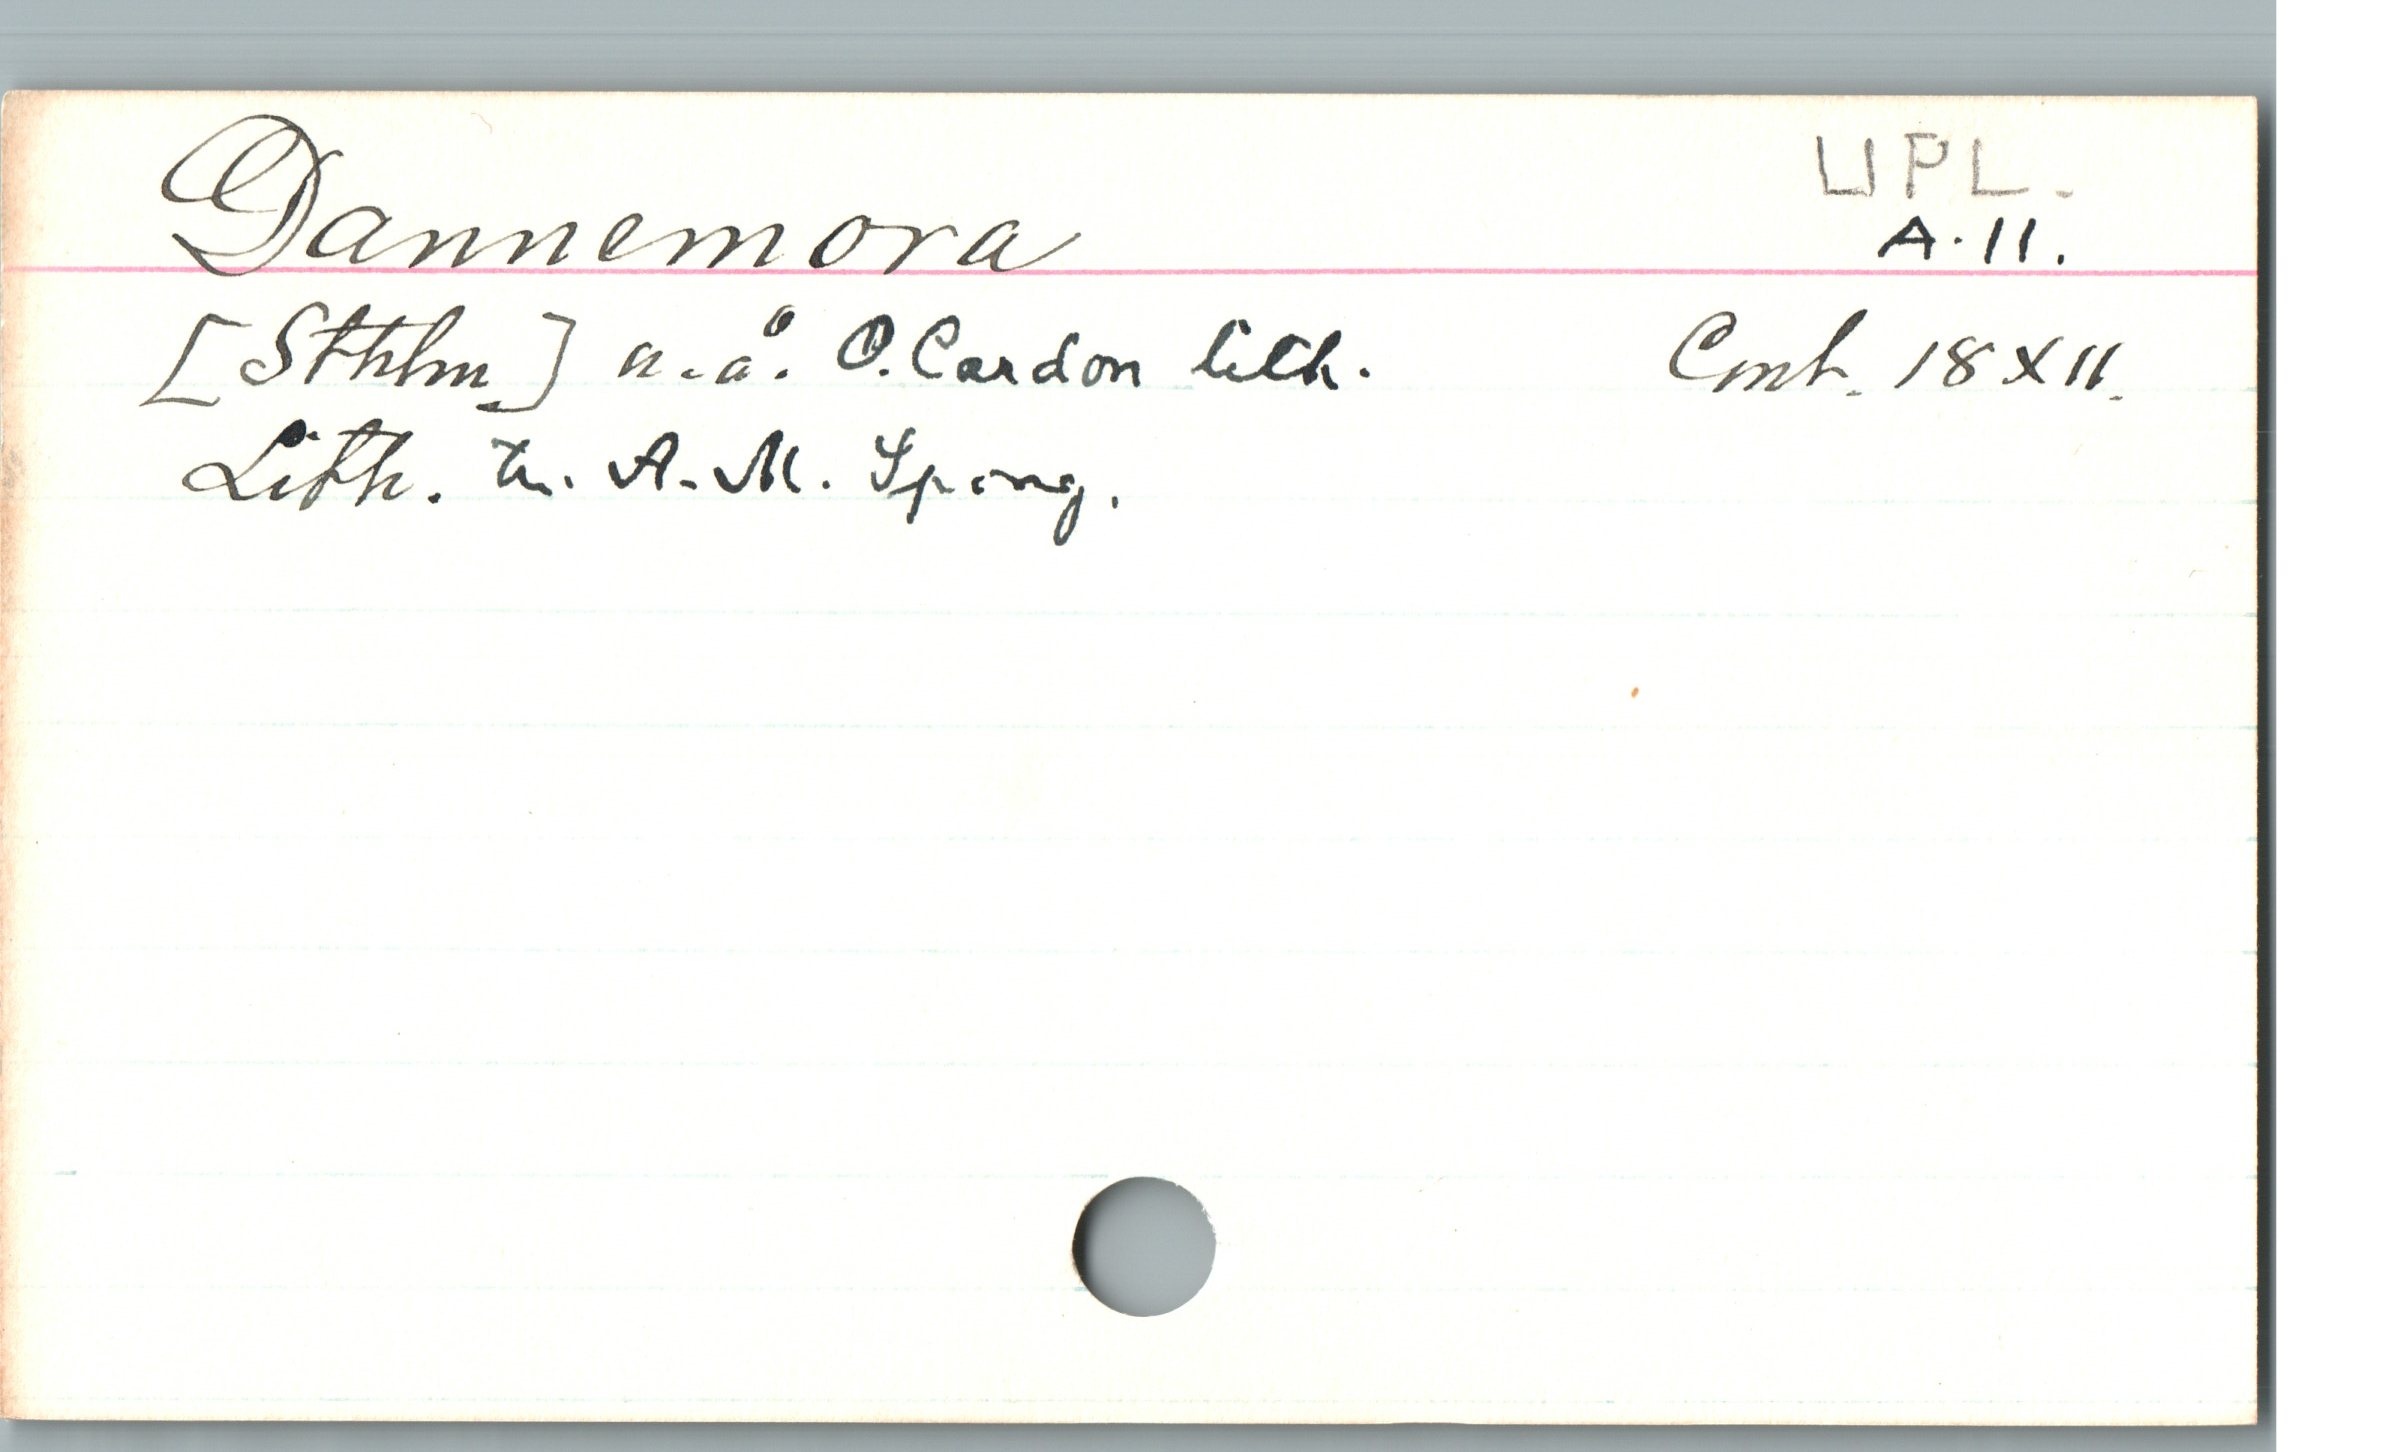 Dannemora
UPL.
A.11.
[Sthlm] u.å. O. Cardon lith.
Cmb. 18 X 11.
Lith. tr. A. M. Spong.